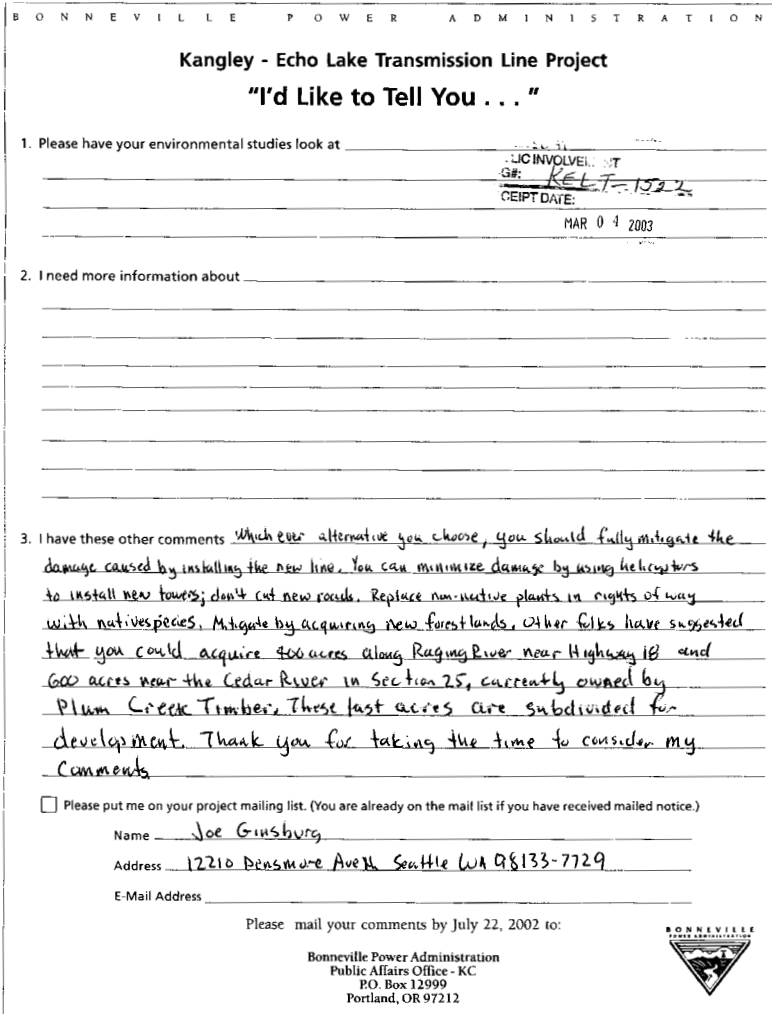 BONNEVILLE POWER ADMINISTRATION
Kangley - Echo Lake Transmission Line Project
"I'd Like to Tell You . . . "
1. Please have your environmental studies look at
LIC INVOLVE
G#: KELT-1522
CEIPT DATE:
MAR 04 2003
2. I need more information about
3. I have these other comments Which ever alternative you choose, you should fully mitigate the
damage caused by installing the new line. You can minimize damage by using helicopters
to install new towers; don't cut new roads. Replace non-native plants in rights of way
with native species. Mitigate by acquiring new forest lands. Other folks have suggested
that you could acquire 400 acres along Raging River near Highway 18 and
600 acres near the Cedar River in Section 25, currently owned by
Plum Creek Timber. These last acres are subdivided for
development. Thank you for taking the time to consider my
Comments
Please put me on your project mailing list. (You are already on the mail list if you have received mailed notice.)
Name Joe Ginsburg
Address 12210 Densmore Ave N Seattle WA 98133-7729
E-Mail Address
Please mail your comments by July 22, 2002 to:
Bonneville Power Administration
Public Affairs Office - KC
P.O. Box 12999
Portland, OR 97212
BONNEVILLE
POWER ADMINISTRATION